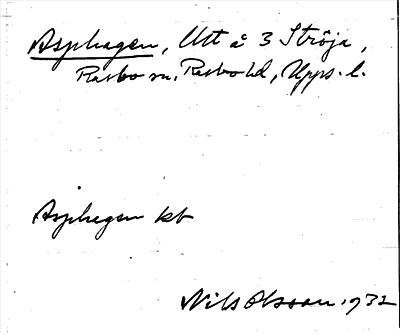 Asphagen, Utt å 3 Ströja,
Rasbo sn, Rasbo hd, Upps. l.
Asphagen kb
Nils Olsson 1932